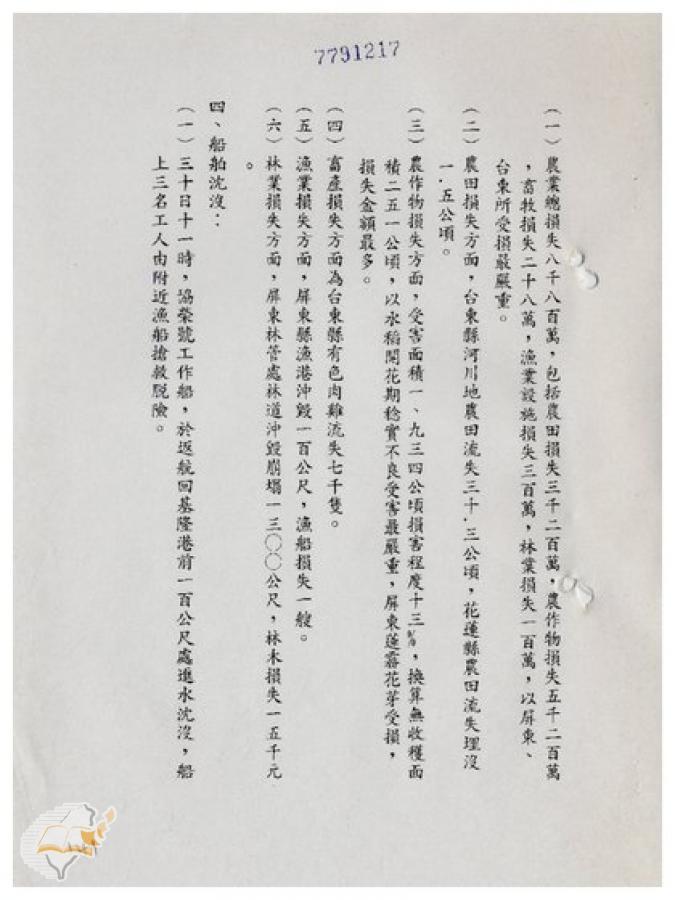 7791217
(一)農業總損失八千八百萬,包括農田損失三千二百萬,農作物損失五千二百萬
,畜牧損失二十八萬,漁業設施損失三百萬,林業損失一百萬,以屏東、
台東所受損最嚴重。
(二)農田損失方面,台東縣河川地農田流失三十.三公頃,花蓮縣農田流失埋沒
一.五公頃。
(三)農作物損失方面,受害面積一、九三四公頃損害程度十三%,換算無收穫面
積二五一公頃,以水稻開花期稔實不良受害最嚴重,屏東蓮霧花芽受損,
損失金額最多。
(四)畜產損失方面為台東縣有色肉雞流失七千隻。
(五)漁業損失方面,屏東縣漁港沖毀一百公尺,漁船損失一艘。
(六)林業損失方面,屏東林管處林道沖毀崩塌一三〇〇公尺,林木損失一五千元
。
四、船舶沈沒:
(一)三十日十一時,協榮號工作船,於返航回基隆港前一百公尺處進水沈沒,船
上三名工人由附近漁船搶救脫險。